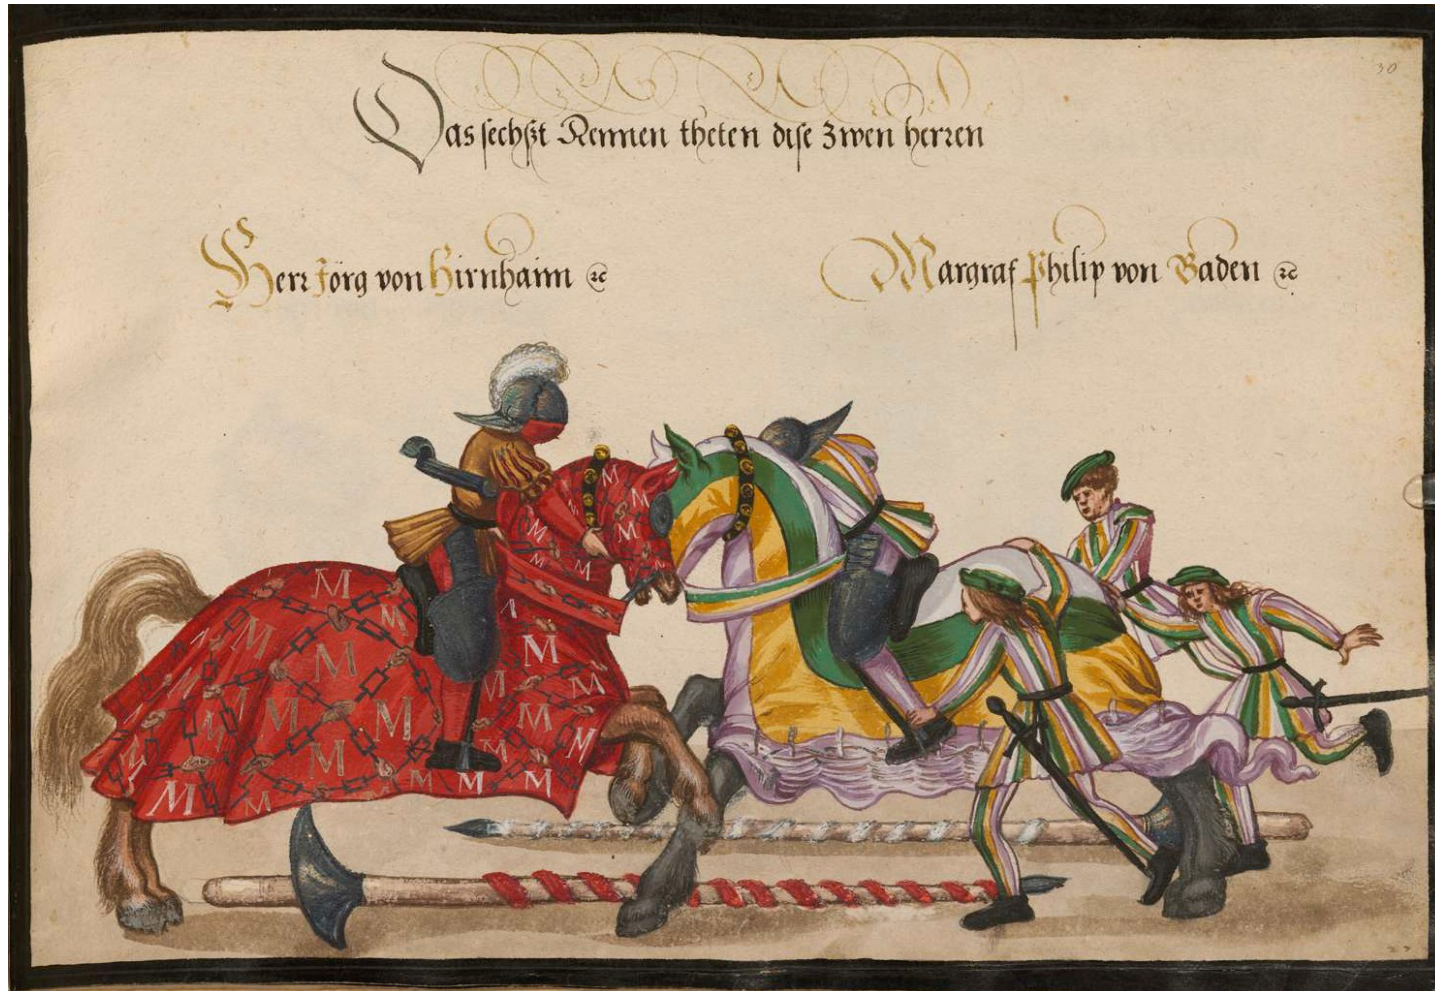 Das sechßt Rennen theten dise zwen herren
Herr Jörg von Hirnhaim ꝛc
Margraf Philip von Baden ꝛc
30
M